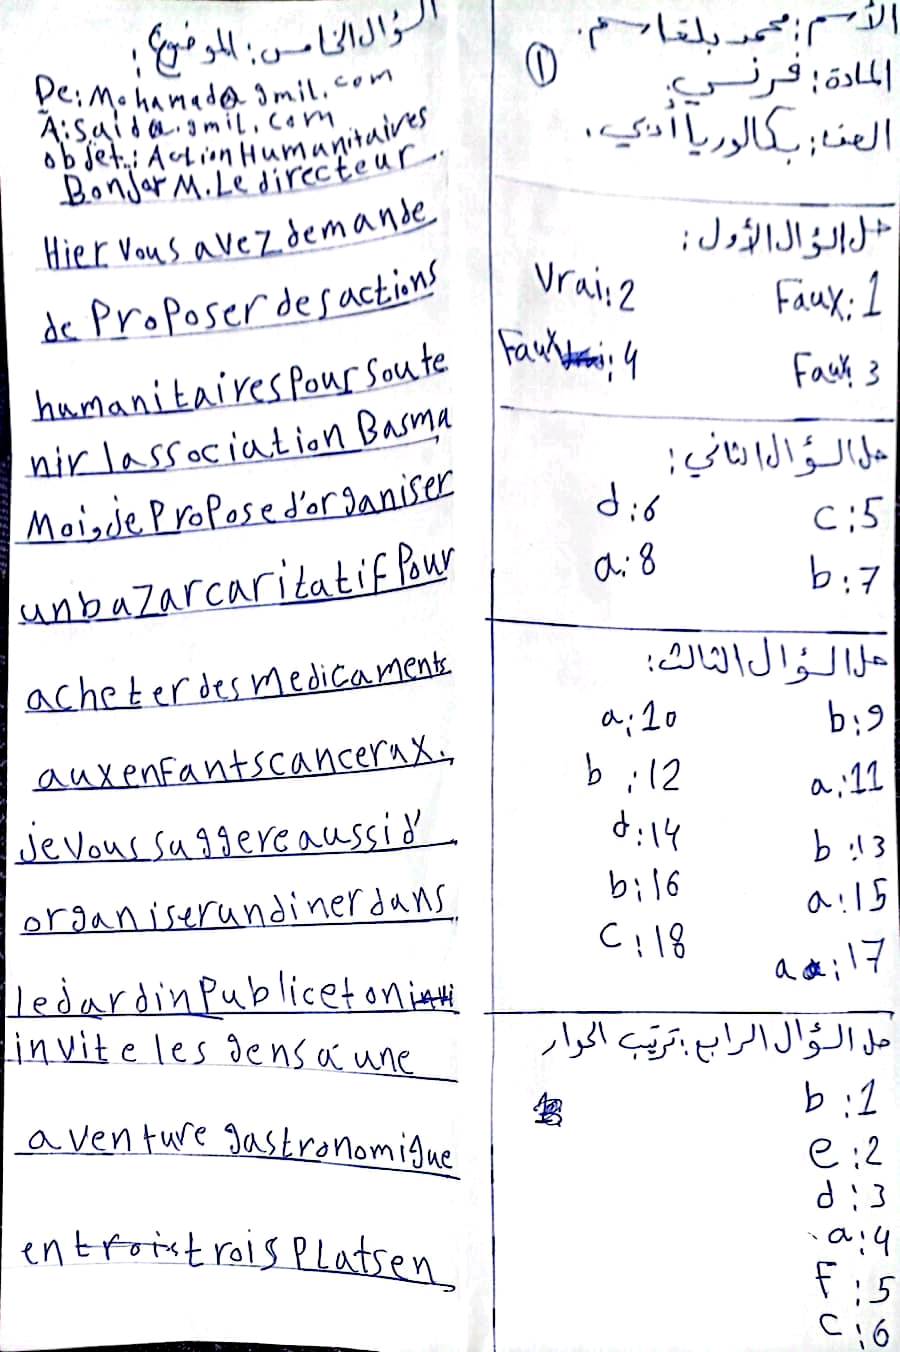 الاسم: محمد بلقاسم.
①
المادة: فرنسي.
الصف: بكالوريا أدبي.
حل السؤال الأول:
Faux: 1
Vrai: 2
Faux: 3
Faux: 4
حل السؤال الثاني:
c: 5
d: 6
b: 7
a: 8
حل السؤال الثالث:
b: 9
a: 10
a: 11
b: 12
b: 13
d: 14
a: 15
b: 16
a: 17
C: 18
حل السؤال الرابع: ترتيب الحوار
b: 1
e: 2
d: 3
a: 4
F: 5
C: 6
السؤال الخامس: الموضوع:
De: Mohamad@gmil.com
A: Said@.gmil.com
objet: Action Humanitaires
Bonjor M. Le directeur
Hier vous avez demande
de Proposer des actions
humanitaires pour soute
nir lassociation Basma
Moi, je Propose d'organiser
un bazar caritatif Pour
acheter des medicaments
aux enfants cancerax.
je vous suggere aussi d'
organiser un diner dans
le dardin Public et on
invite les gens a une
aventure gastronomigue
en trois Plats en